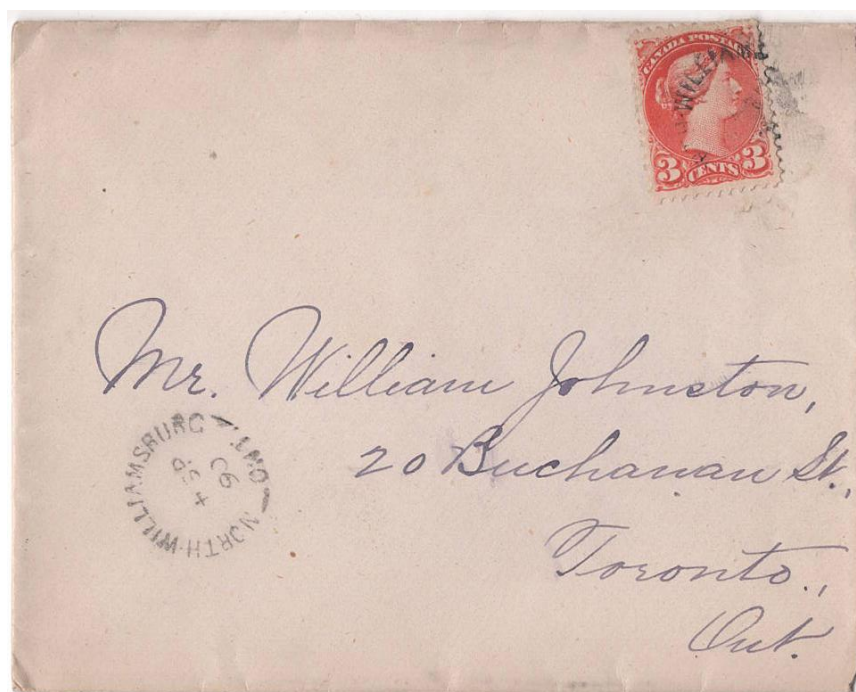 CANADA POSTAGE
WILLIAMS
3 CENTS 3
Mr. William Johnston,
20 Buchanan St.,
Toronto,
Ont.
NORTH-WILLIAMSBURG
ONT.